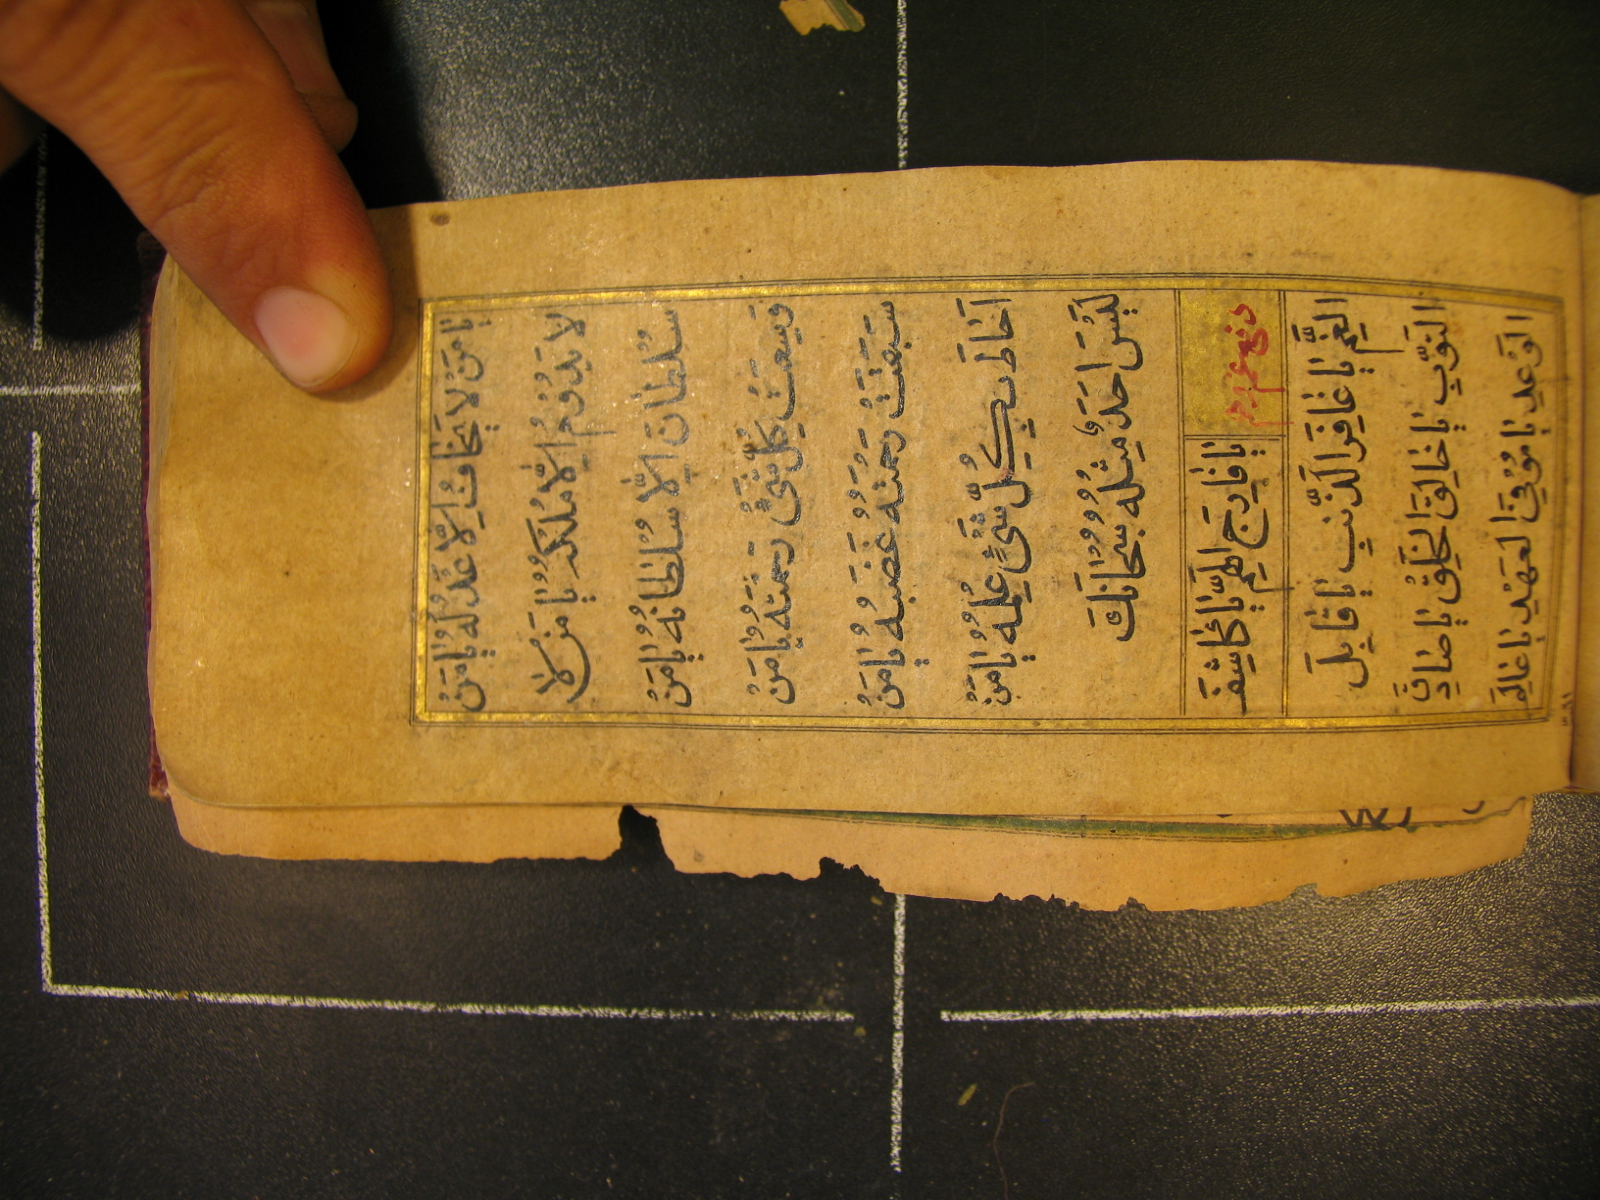 يَا مَنْ لَا يَخَافُ اِلَّا عَدْلُهُ يَا مَنْ
لَا يَدُومُ اِلَّا مُلْكُهُ يَا مَنْ لَا
سُلْطَانَ اِلَّا سُلْطَانُهُ يَا مَنْ
وَسِعَتْ كُلَّ شَيْءٍ رَحْمَتُهُ يَا مَنْ
سَبَقَتْ رَحْمَتُهُ غَضَبَهُ يَا مَنْ
اَحَاطَ بِكُلِّ شَيْءٍ عِلْمُهُ يَا مَنْ
لَيْسَ اَحَدٌ مِثْلَهُ سُبْحَانَكَ
دفع غم يَا فَارِجَ الْهَمِّ يَا كَاشِفَ
الْغَمِّ يَا غَافِرَ الذَّنْبِ يَا قَابِلَ
التَّوْبِ يَا خَالِقَ الْخَلْقِ يَا صَادِقَ
الْوَعْدِ يَا مُوفِيَ الْعَهْدِ يَا عَالِمَ